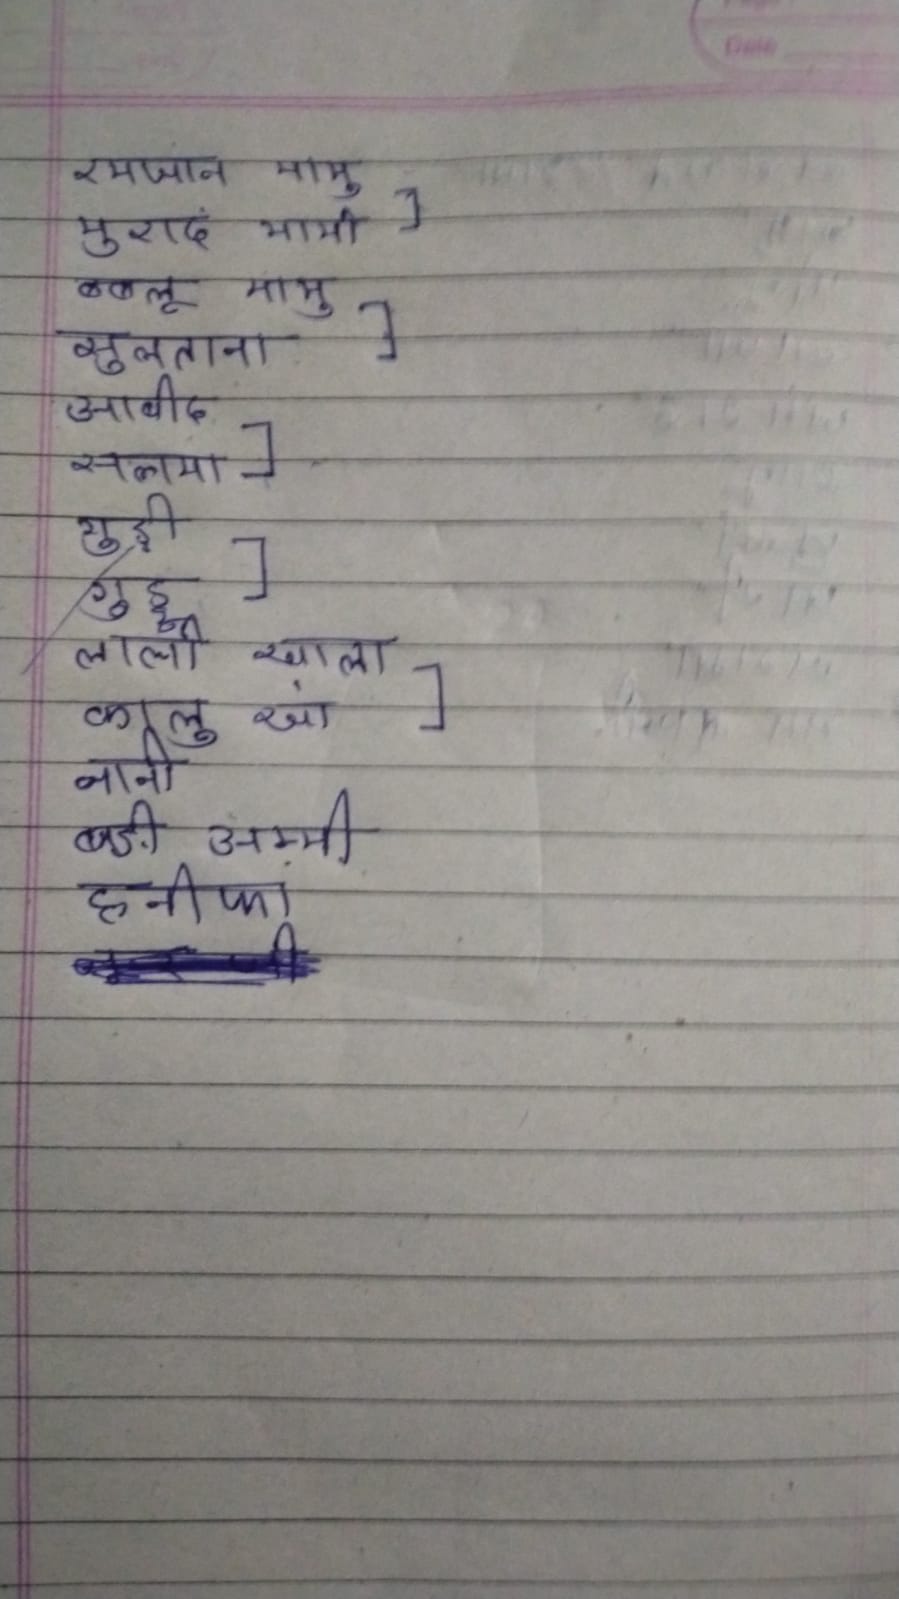 Date
रमजान मामु
मुराद मामी
बबलू मामु
सुलताना
आबीद
सलमा
गुड्डी
गुड्डू
लाली खाला
कालु खां
नानी
बडी अम्मी
हनीफा